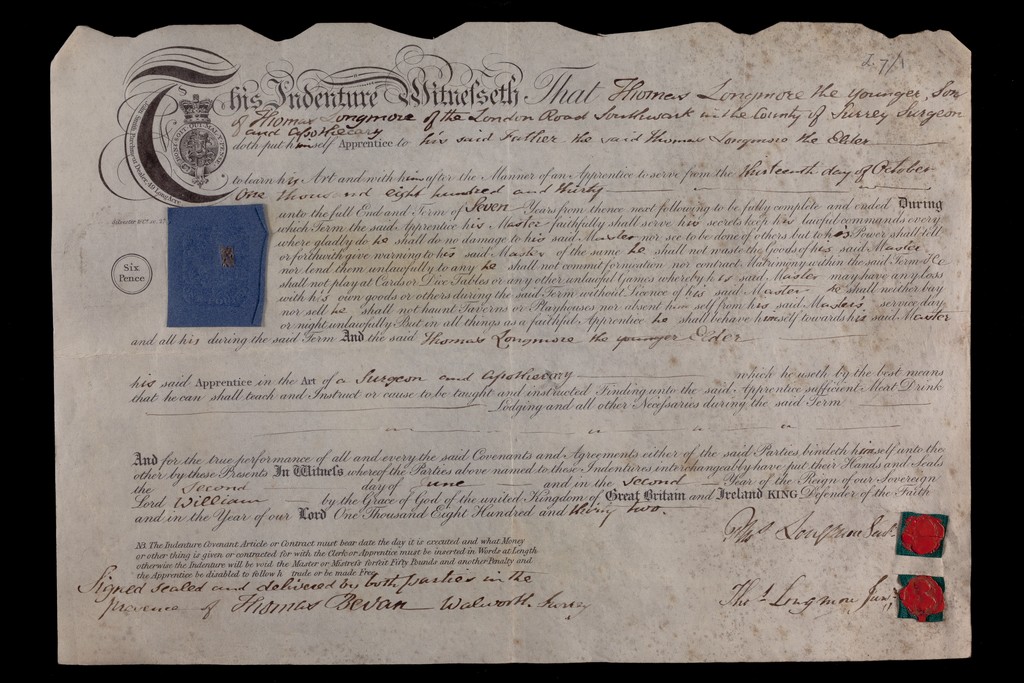 I. 7/1
This Indenture Witnesseth That Thomas Longmore the younger, Son
of Thomas Longmore of the London Road Southwark in the County of Surrey Surgeon
and Apothecary
doth put himself Apprentice to his said Father the said Thomas Longmore the Elder
to learn his Art and with him after the Manner of an Apprentice to serve from the thirteenth day of October
One thousand eight hundred and thirty
unto the full End and Term of Seven Years from thence next following to be fully complete and ended During
which Term the said Apprentice his Master faithfully shall serve his secrets keep his lawful commands every
where gladly do he shall do no damage to his said Master nor see to be done of others but to his Power shall tell
or forthwith give warning to his said Master of the same he shall not waste the Goods of his said Master
nor lend them unlawfully to any he shall not commit fornication nor contract Matrimony within the said Term He
shall not play at Cards or Dice Tables or any other unlawful Games whereby his said Master may have any loss
with his own goods or others during the said Term without Licence of his said Master he shall neither buy
nor sell he shall not haunt Taverns or Playhouses nor absent himself from his said Masters service day
or night unlawfully But in all things as a faithful Apprentice he shall behave himself towards his said Master
and all his during the said Term And the said Thomas Longmore the younger Elder
Six
Pence
his said Apprentice in the Art of a Surgeon and Apothecary which he useth by the best means
that he can shall teach and Instruct or cause to be taught and instructed Finding unto the said Apprentice sufficient Meat Drink
Lodging and all other Necessaries during the said Term
And for the true performance of all and every the said Covenants and Agreements either of the said Parties bindeth himself unto the
other by these Presents In Witness whereof the Parties above named to these Indentures interchangeably have put their Hands and Seals
the Second day of June and in the Second Year of the Reign of our Sovereign
Lord William by the Grace of God of the united Kingdom of Great Britain and Ireland KING Defender of the Faith
and in the Year of our Lord One Thousand Eight Hundred and thirty two.
NB. The Indenture Covenant Article or Contract must bear date the day it is executed and what Money
or other thing is given or contracted for with the Clerk or Apprentice must be inserted in Words at Length
otherwise the Indenture will be void the Master or Mistress forfeit Fifty Pounds and another Penalty and
the Apprentice be disabled to follow h trade or be made Free
Signed sealed and delivered by both parties in the
presence of Thomas Bevan Walworth Surrey
Thos Longmore Senr.
Thos. Longmore Junr.